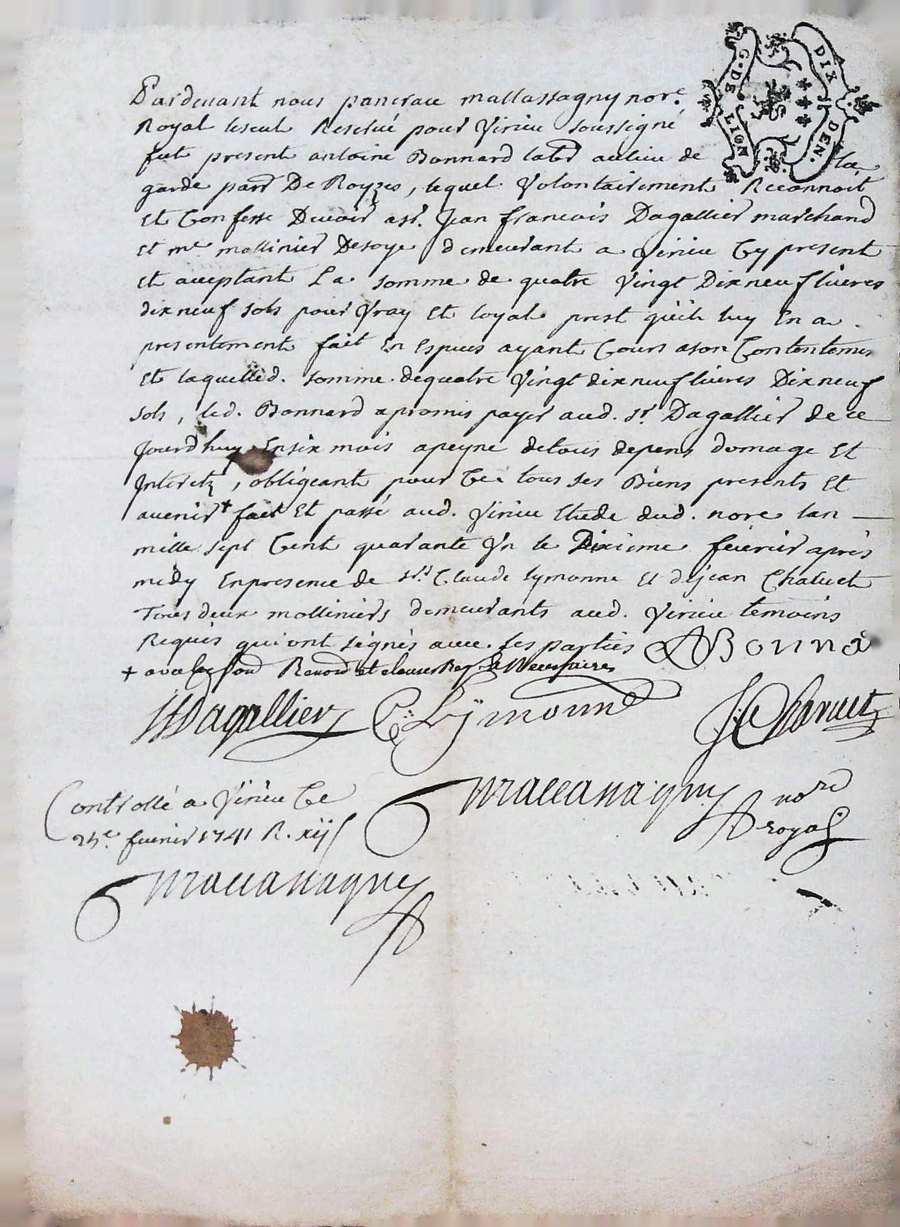 G. DE LION DIX DEN.
Pardevant nous pancrace mallassagny nore.
Royal leseul Reservé pour Virieu soussigné
fut present antoine Bonnard labr aulieu de la
garde parr De Royzes, lequel Volontairement Reconnoit
Et Confesse Devoir asr. Jean francois Dagallier marchand
Et me mollinier Desoye demeurant a Virieu Cy present
Et acceptant La somme de quatre Vingt Dixneuf livres
dixneuf sols pour Vray Et loyal prest quil luy En a
presentement fait En Especes ayant Cours ason Contentemt
Et laquelle d. somme dequatre Vingt dixneuf livres Dixneuf
sols, led. Bonnard a promis payer aud. sr. Dagallier de ce
Jourdhuy Ensix mois apeyne detous depens domage Et
Interetz, obligeant pour Ce tous ses Biens presents Et
avenir + fait Et passé aud. Virieu Etude dud. nore lan
mille sept Cent quarante Un le Dixieme fevrier apres
midy Enpresence de srs Claude symonne Et dJean Chaluet
Tous deux molliniers demeurants aud. Virieu temoins
Requis qui ont signés avec les parties Bonna
+ avec Renon et clauses Necessaires
Dagallier C. Symonne J. Charuet
Controllé a Virieu Ce
fevrier 1741 R. xij s
Maccanagny nore
royal
Maccanagny